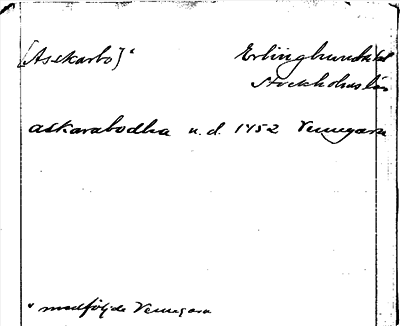 [Askarbo]* Erlinghundra hd
Stockholms län
askarabodha u.d. 1452 Vennegarn
* medföljde Vennegarn